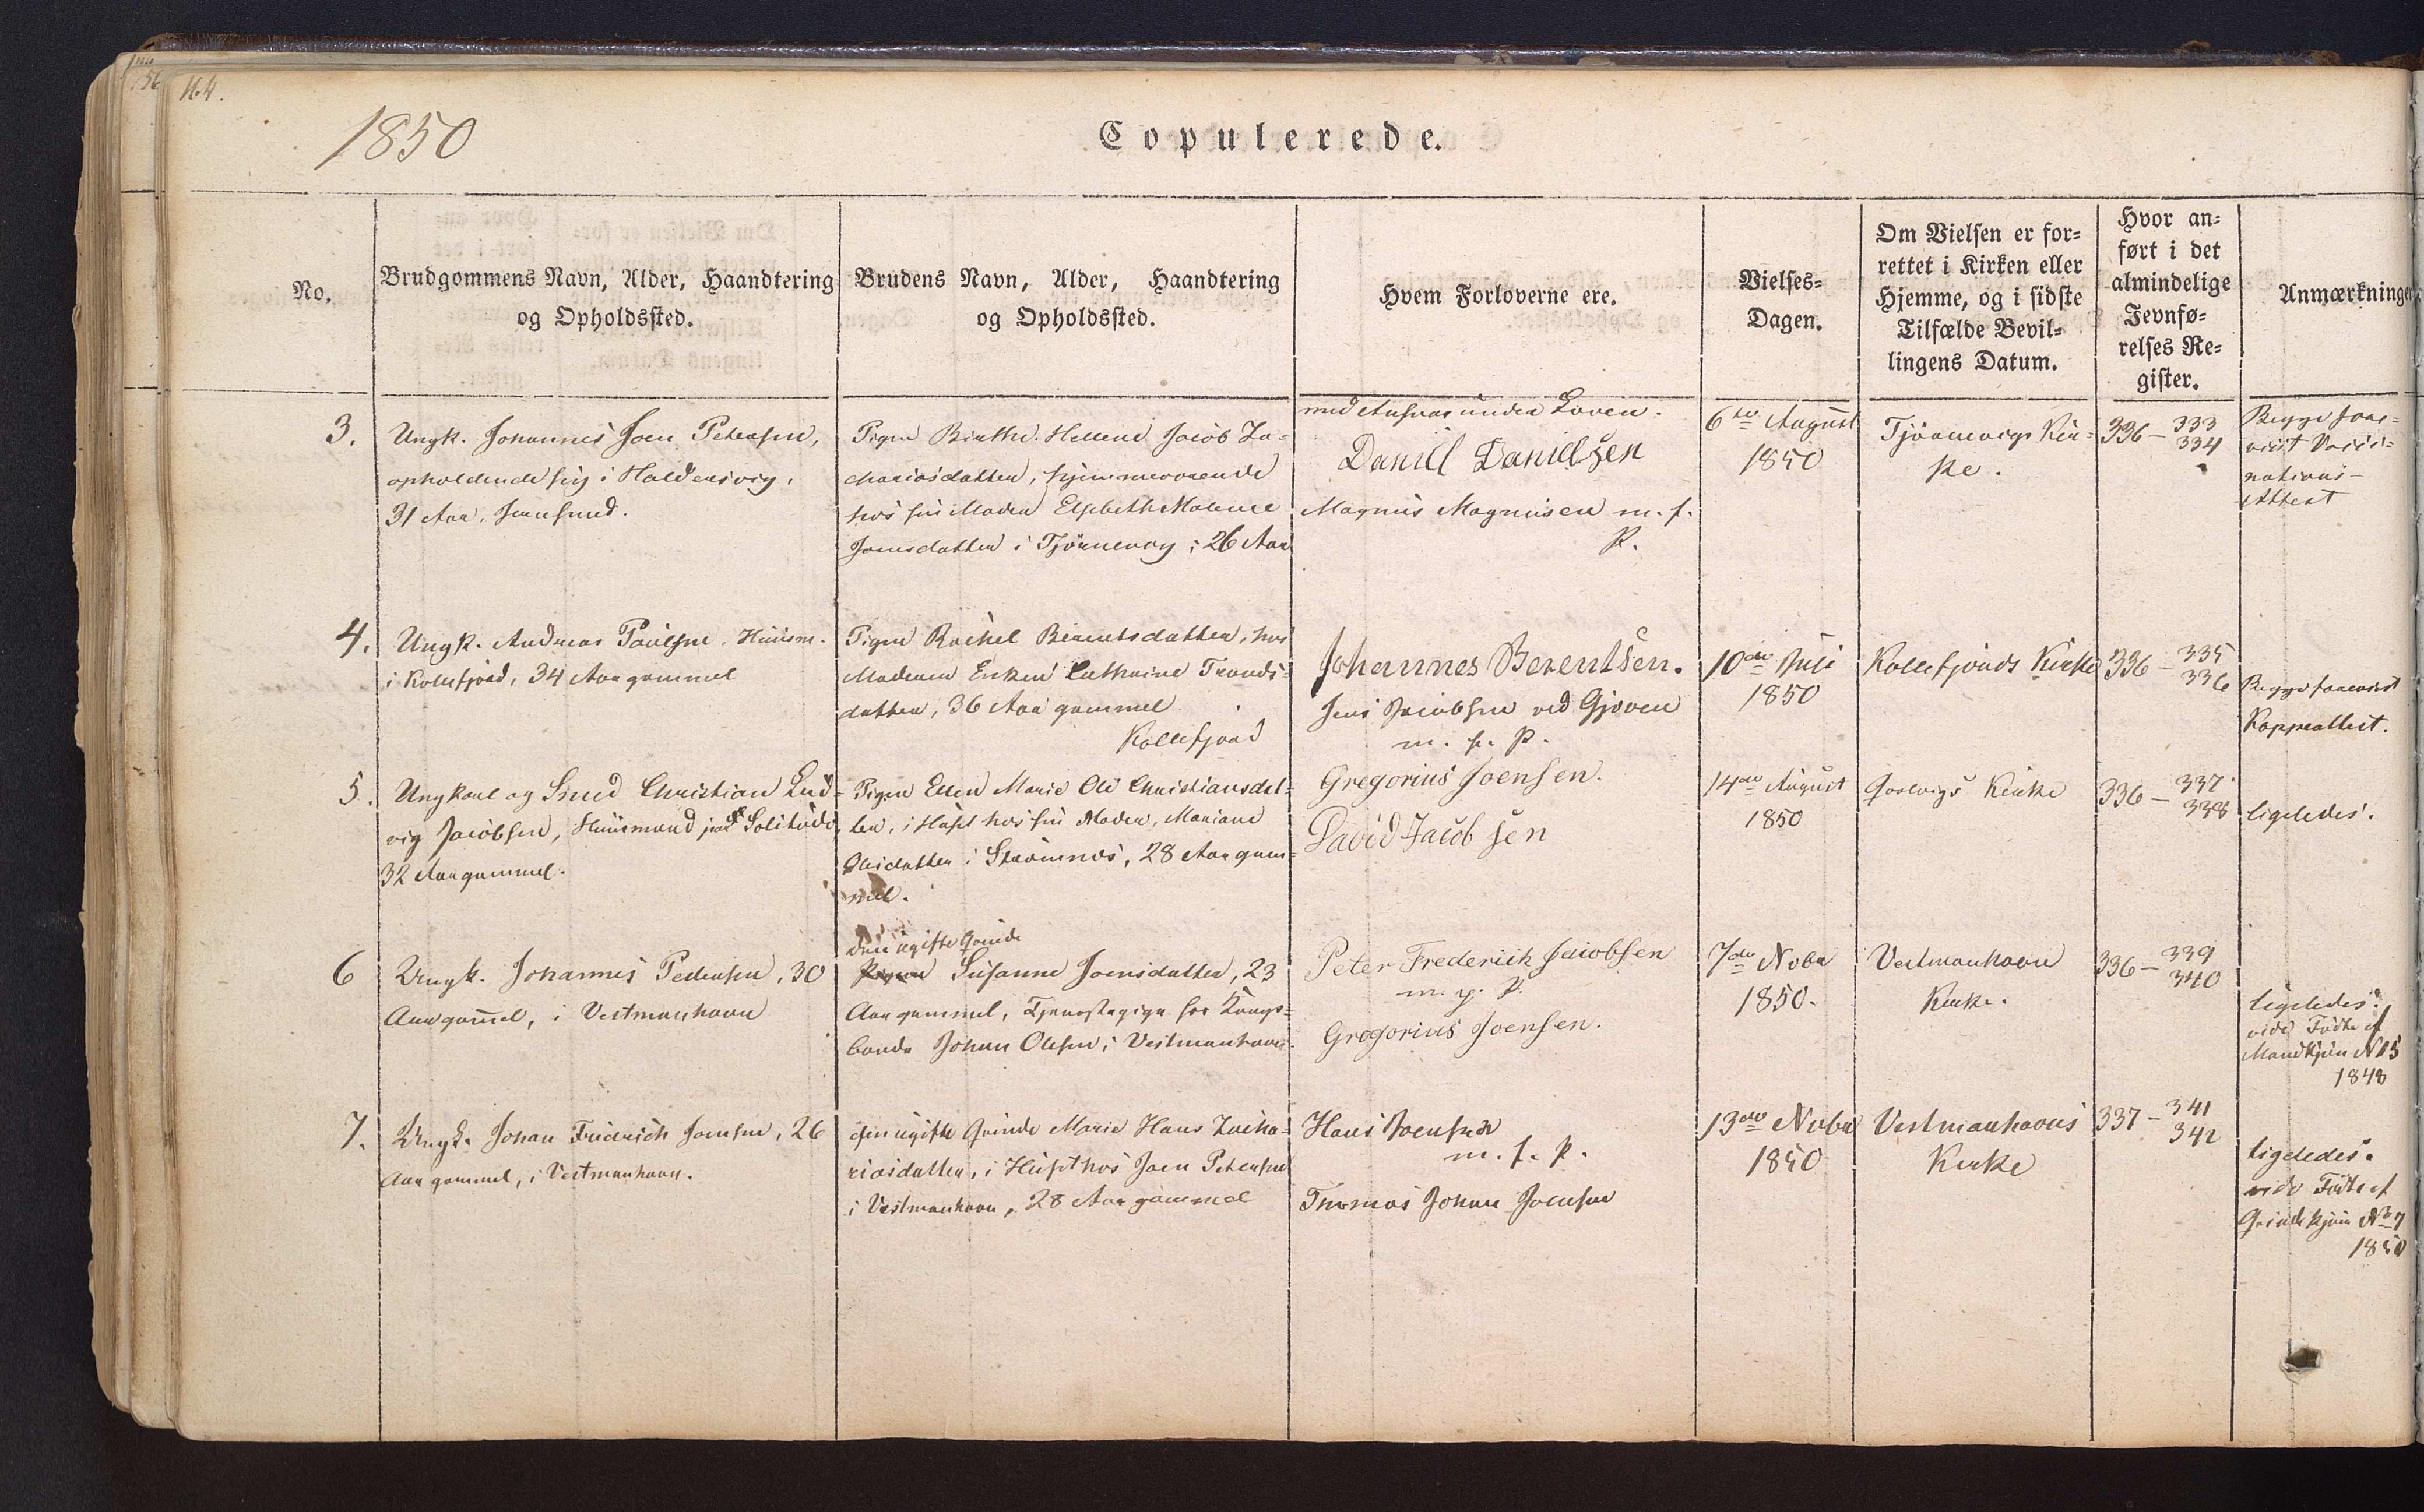 1850
Copulerede.
No.
Brudgommens Navn, Alder, Haandtering
og Opholdssted.
Brudens Navn, Alder, Haandtering
og Opholdssted.
Hvem Forloverne ere.
Vielses-
Dagen.
Om Vielsen er for-
rettet i Kirken eller
Hjemme, og i sidste
Tilfælde Bevil-
lingens Datum.
Hvor an-
ført i det
almindelige
Jevnfø-
relses Re-
gister.
Anmærkninge
3.
Ungk. Johannes Joen Petersen,
opholdende sig i Haldersvig,
31 Aar,
Pigen Birthe Hellene Jacob Za-
chariasdatter, hjemmeværende
hos sin Moder Elsebeth Malene
Joensdatter i Tjørnevig; 26 Aar
med Ansvar under Loven.
Daniel Danielsen
Magnus Magnusen m. f.
P.
6te August
1850
Tjørnevigs Kir-
ke.
336 - 333
334
Begge fore-
viist Vacci-
nations-
Attest
4.
Ungk. Andreas Poulsen, Huusm.
i Kollefjord, 34 Aar gammel
Pigen Rachel Berentsdatter, hos
Moderen Cathrine Tronds-
datter, 36 Aar gammel
Kollefjord
Johannes Berentsen.
Jens Jacobsen ved Gjoven
m. f. P.
10de Juli
1850
Kollefjords Kirke
336 - 335
336
Begge foreviist
Koppeattest.
5.
Ungkarl og Smed Christian Lud-
vig Jacobsen, Huusmand paa Solitude
32 Aar gammel.
Pigen Ellen Marie Ole Christiansdat-
ter, i Huset hos sin Moder, Mariane
Olesdatter i Strømnæs, 28 Aar gam-
mel.
Gregorius Joensen.
David Jacobsen
14de August
1850
Qvalvigs Kirke
336 - 337
338
ligeledes.
6
Ungk. Johannes Pedersen, 30
Aar gammel, i Vestmanhavn
den ugifte Qvinde
Pigen Susanne Joensdatter, 23
Aar gammel, Tjenestepige hos Kongs-
bonde Johan Olesen i Vestmanhavn.
Peter Frederich Jacobsen
m. f. P.
Gregorius Joensen.
7de Nobr
1850.
Vestmanhavn
Kirke.
336 - 339
340
ligeledes.
vide Fødte af
Mandkjøn N 15
1848
7.
Ungk. Johan Friderich Joensen, 26
Aar gammel, i Vestmanhavn.
den ugifte Qvinde Marie Hans Zacha-
riasdatter, i Huset hos Joen Petersen
i Vestmanhavn, 28 Aar gammel
Hans Joensen
m. f. P.
Thomas Johan Joensen
13de Nobr
1850
Vestmanhavns
Kirke
337 - 341
342
ligeledes.
vide Fødte af
Qvindekjøn No 7
1850